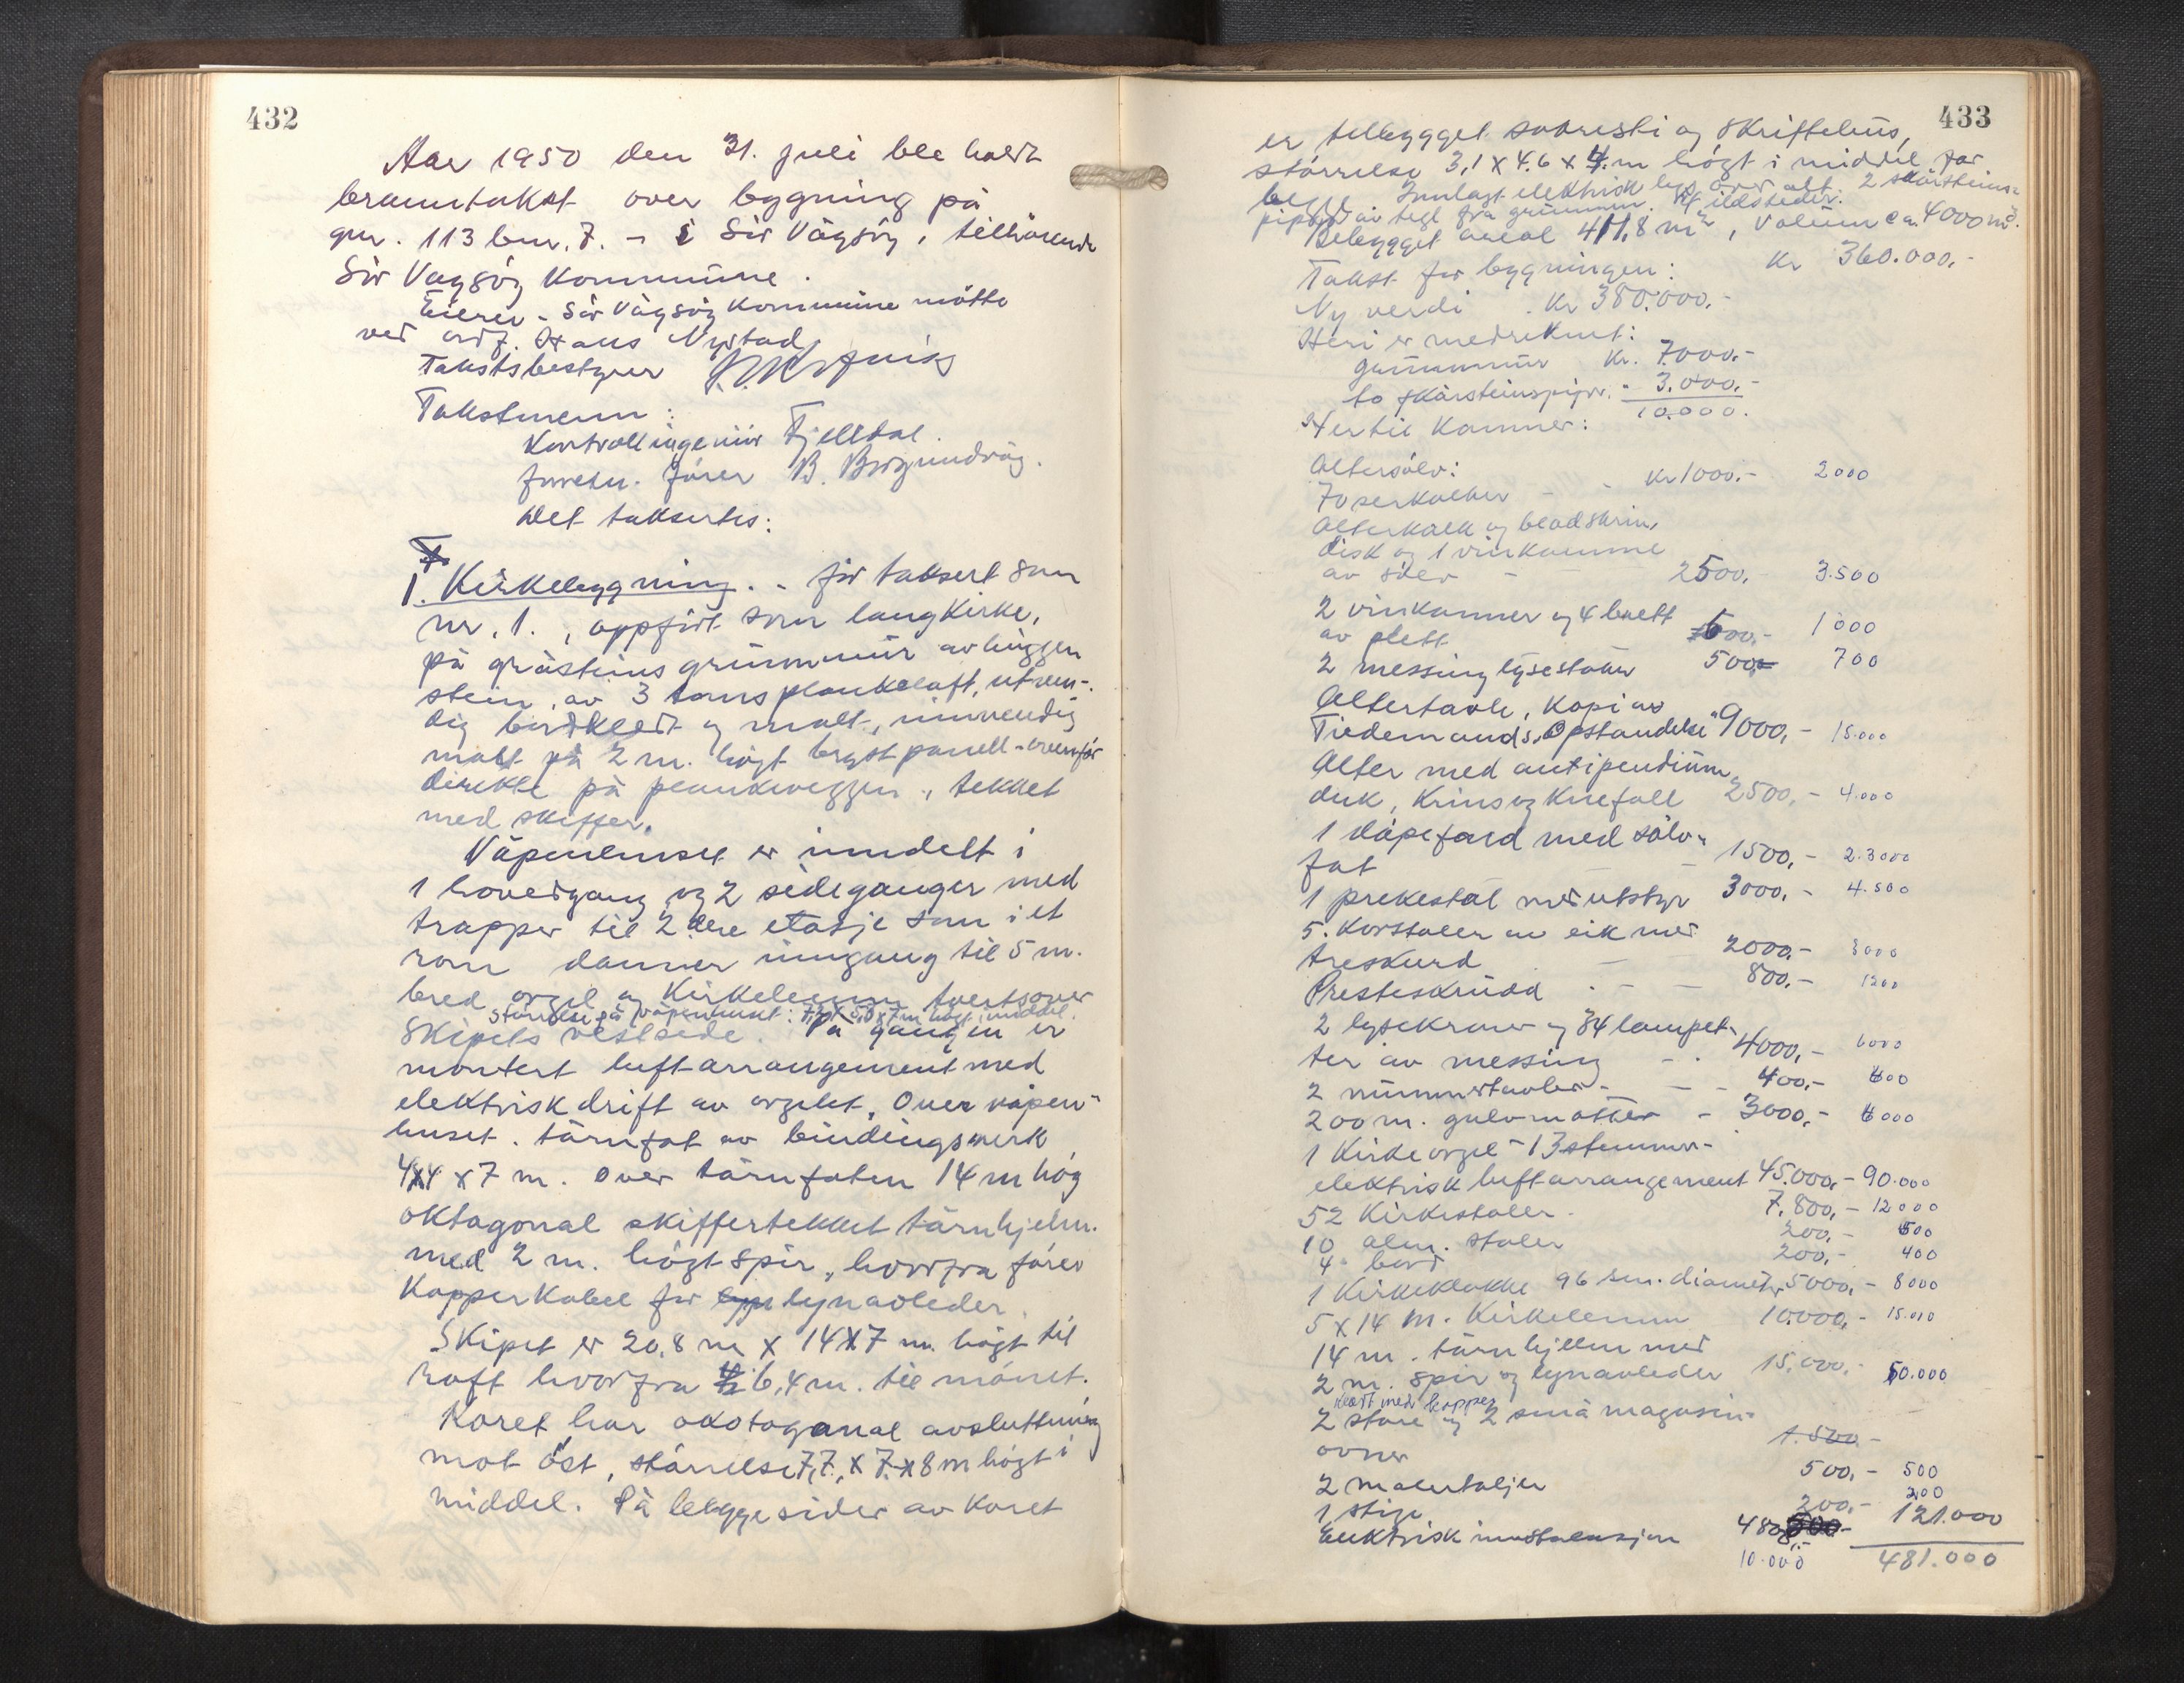 432
Aar 1950 den 31. juli ble holdt
branntakst over bygning på
gnr. 113 bnr. 7. - i Sör Vågsöy, tilhörende
Sör Vagsöy Kommune.
Eieren - Sör Vågsöy Kommune mötte
ved ordf. Hans Nystad
Takstbestyrer
Takstmenn:
Kontrollingeniör Fjelldal.
forretn. förer B. Borgundvåg.
Det taksertes:
1. Kirkebygning. - för taksert som
nr. 1., oppfört som langkirke,
på gråsteins grunnmur av huggen
stein, av 3 toms plankelaft, utven-
dig bordkledt og malt, innvendig
malt på 2 m. högt brystpanell - ovenfor
direkte på plankveggen, tekket
med skiffer.
Våpenhuset er inndelt i
1 hovedgang og 2 sideganger med
trapper til 2 dre etasje som i et
rom danner inngang til 5 m.
bred orgel og Kirkelemm tvertsover
störrelse på våpenhuset: 7,2 x 5,0 x 7 m högt i middel.
Skipets vestside. På gangen er
montert luftarrangement med
elektrisk drift av orgelet. Over våpen-
huset. tårnfot av bindingsverk
4x4 x 7 m. Over tårnfoten 14 m hög
oktagonal skiffertekket tårnhjelm.
med 2 m. högt spir, hvorfra förer
Kopperkabel for lynavleder.
Skipet er 20,8 m x 14 x 7 m. högt til
raft hvorfra 6,4 m. til mönet.
Koret har okotogonal avsluttning
mot öst, störrelse 7,7 x 7 x 8 m högt i
middel. På begge sider av Koret
433
er tilbygget sakresti og Skriftehus,
störrelse 3,1 x 4,6 x 4. m högt i middel for
begge Innlagt elektrisk lys over alt. 2 skorsteins-
piper av tegl fra grunnen. ildsteder.
Bebygget areal 411,8 m², Volum ca. 4000 m³.
Takst for bygningen: Kr 360.000,-
Ny verdi . Kr 380.000,-
Heri er medreknet:
grunnmur Kr. 7000.-
to skorsteinspiper. " 3.000.-
10.000.
Hertil kommer:
Altersölv:
70 serkalker - - Kr 1000.- 2000
Alterkalk og brödskrin,
disk og 1 vinkanne
av sölv - - 2500.- 3.500
2 vinkanner og 4 brett
av plett 600.- 1000
2 messing lysestaker 500 700
Altertavle, Kopi av
Tiedemands "Opstandelse" 9000,- 15.000
Alter med antipendium,
duk, Krins og Knefall 2500,- 4.000
1 döpefond med sölv-
fat - 1500,- 2.3000
1 prekestol med utstyr 3000,- 4.500
5. Korstoler av eik med
treskurd - 2000,- 3000
Presteskrudd - - - 800,- 1200
2 lysekroner og 34 lampet-
ter av messing - . 4000,- 6000
2 nummertavler - - - 400,- 600
200 m. gulvmatter - 3000,- 6000
1 Kirkeorgel - 13 stemmer -
elektrisk luftarrangement 45.000,- 90.000
52 Kirkestoler. 7.800,- 12000
10 alm. stoler 200.- 500
4 " bord 200,- 400
1 Kirkeklokke 96 sm. diameter 5000,- 8000
5 x 14 m. Kirkelemm 10.000,- 15.000
14 m. tårnhjelm med
2 m. spir og lynavleder 15.000,- 50.000
kledt med kopper
2 store og 2 små magasin-
ovner 1.500 -
2 malertaljer 500,- 500
1 stige 200,- 200
Elektrisk innstalasjon 121.000
10.000 481.000